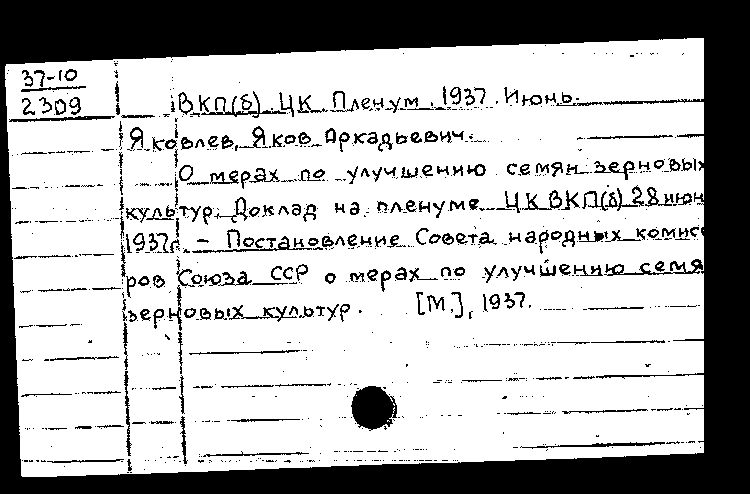 37-10
2309
ВКП(б). ЦК. Пленум. 1937. Июнь.
Яковлев, Яков Аркадьевич.
О мерах по улучшению семян зерновых
культур. Доклад на пленуме ЦК ВКП(б) 28 июн
1937г. – Постановление Совета народных комисс
ров Союза ССР о мерах по улучшению семя
зерновых культур. [М.], 1937.